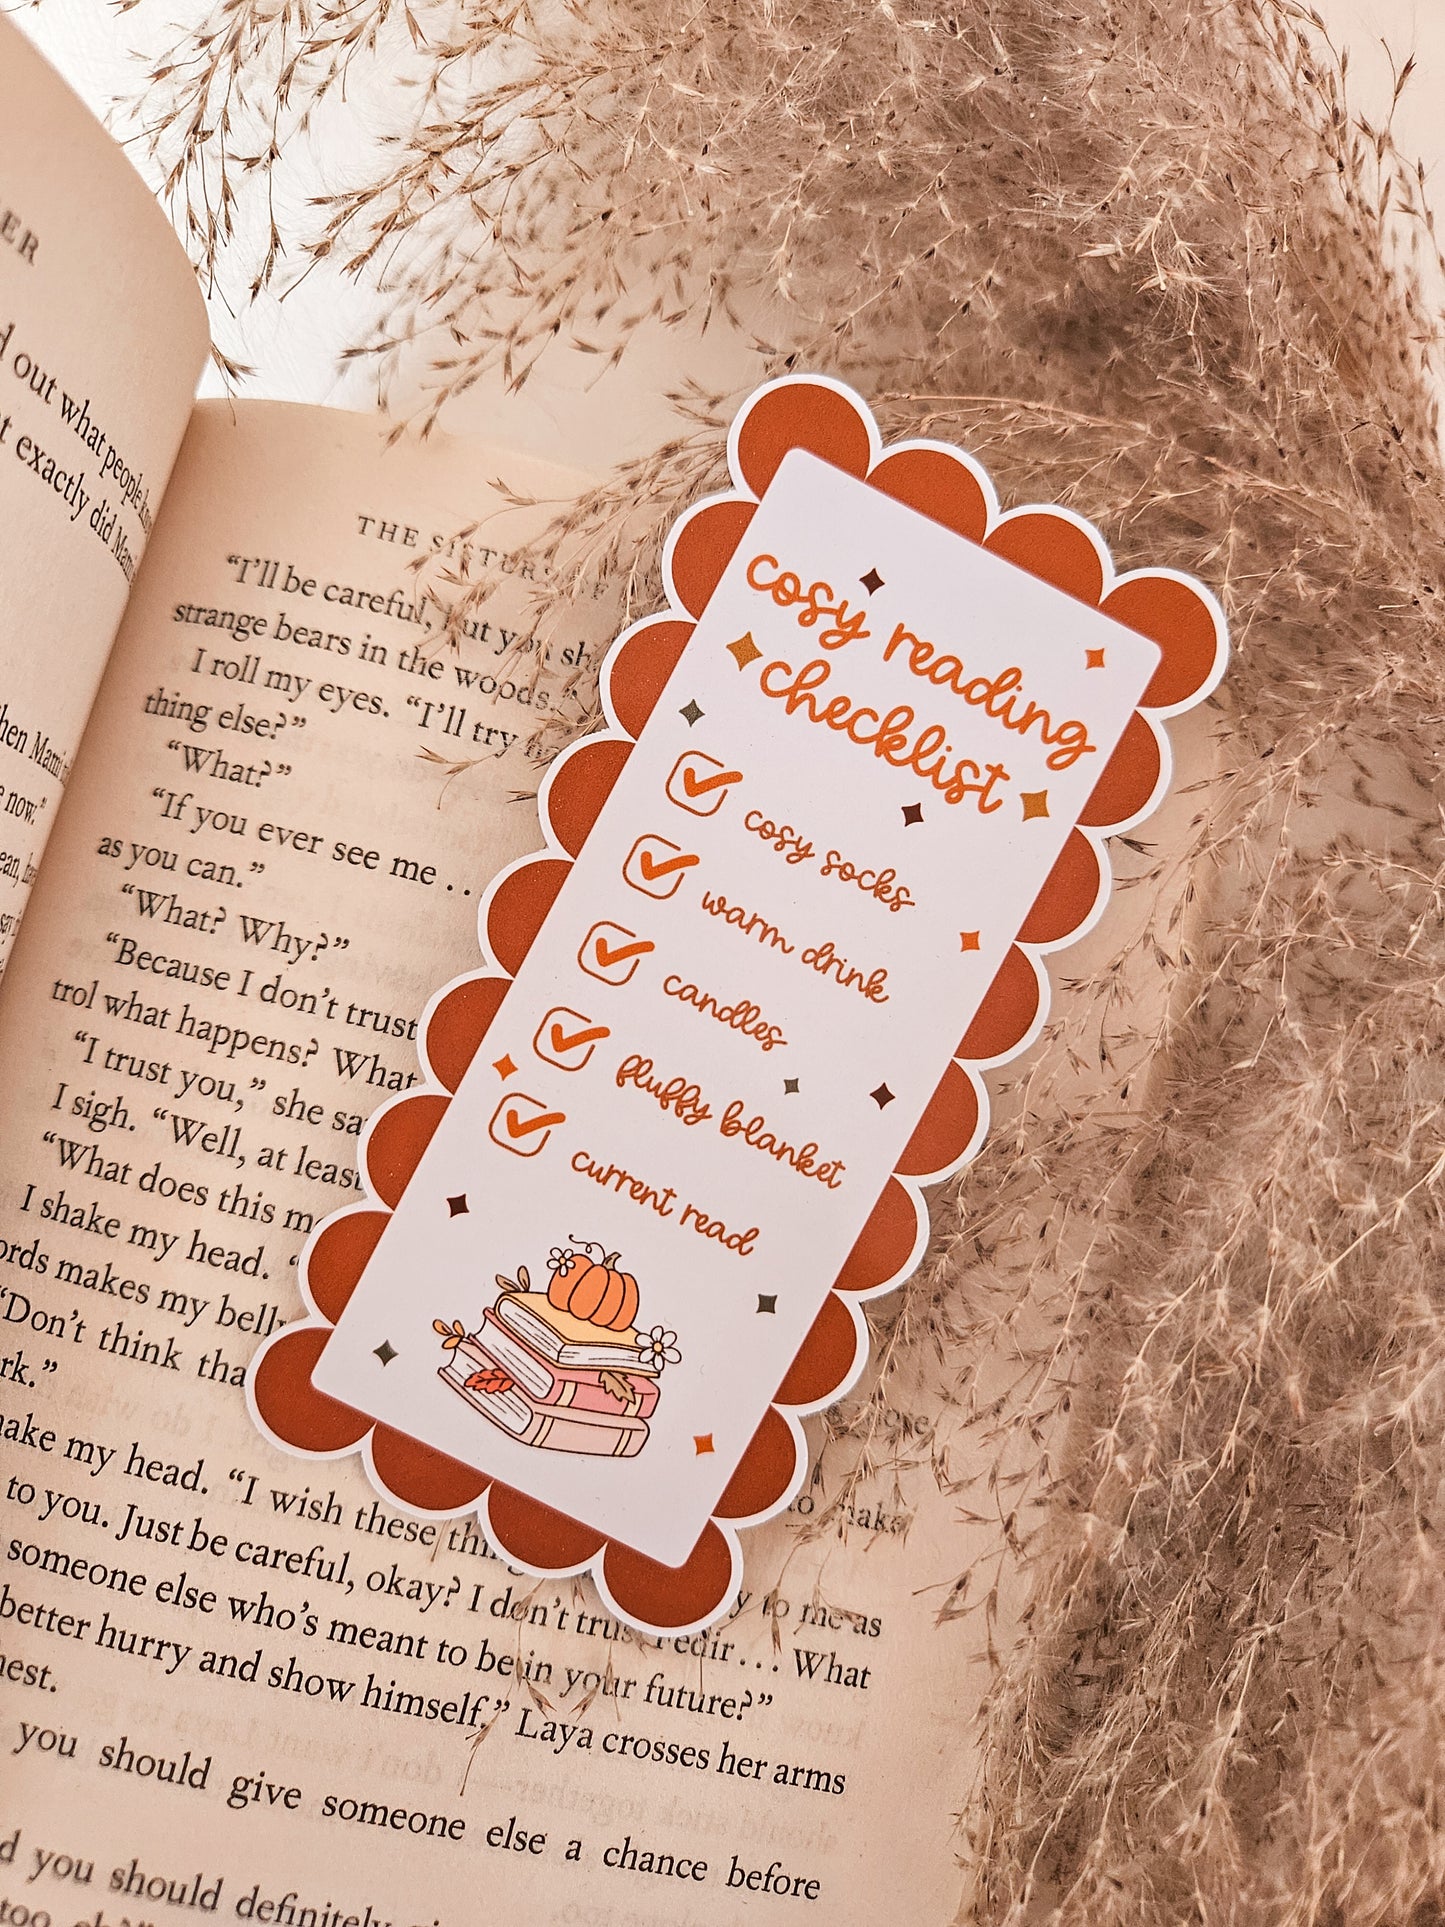 ER
d out what people
t exactly did Mam
hen Mami
now."
THE SISTERS OF
"I'll be careful, but you sh
strange bears in the woods."
I roll my eyes. "I'll try
thing else?"
"What?"
"If you ever see me . .
as you can."
"What? Why?"
"Because I don't trust
trol what happens? What
"I trust you," she sa
I sigh. "Well, at least
"What does this m
I shake my head. "
ords makes my belly
"Don't think tha
rk."
hake my head. "I wish these thin
to you. Just be careful, okay? I don't trus
y to me as
someone else who's meant to be in your future?"
What
better hurry and show himself." Laya crosses her arms
nest.
you should give someone else a chance before
d you should definitely
cosy reading
checklist
cosy socks
warm drink
candles
fluffy blanket
current read